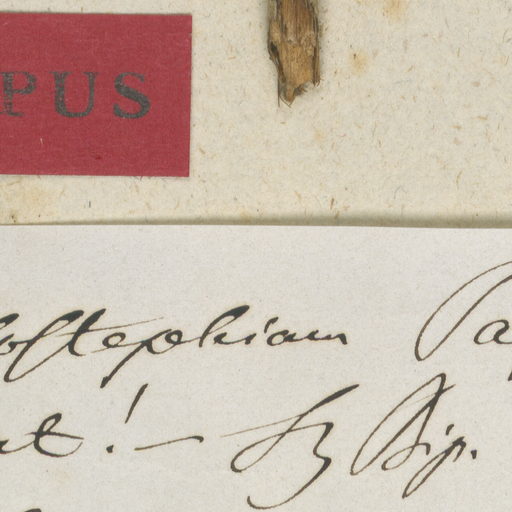 PUS
ostephiam Pa
at! — Sz Bip.